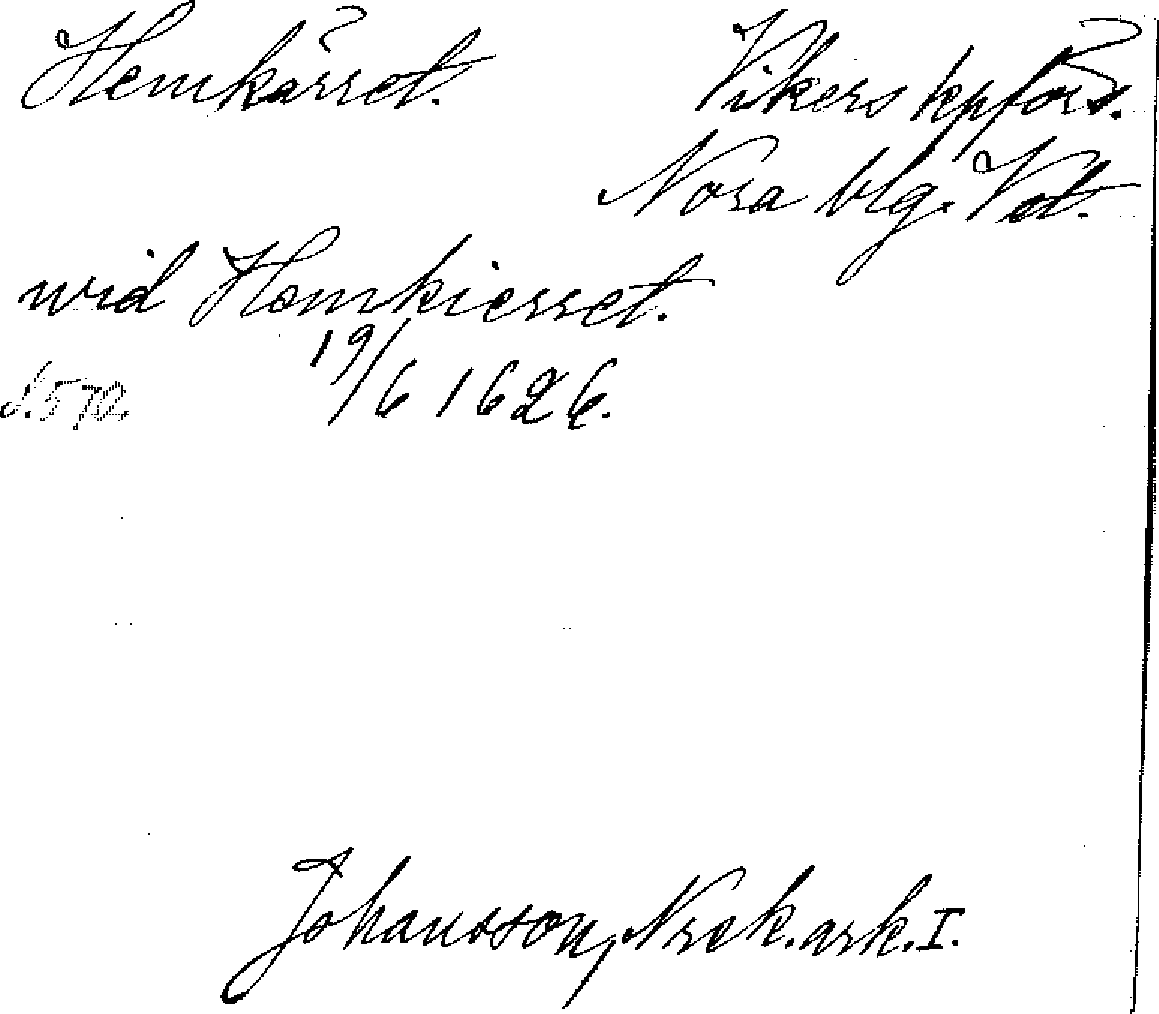 Hemkärret. Vikers kpförs.
Nora blg. Vstm.
wid Hemkierret.
19/6 1626.
s. 572.
Johansson, Nrek. ark. I.